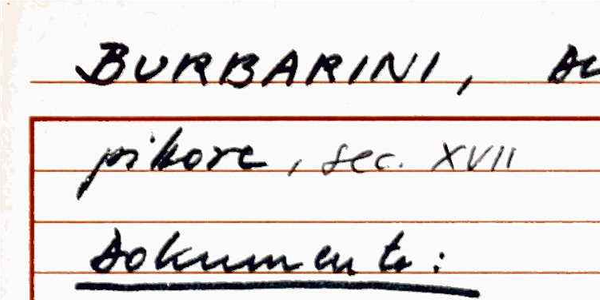 BURBARINI,
pittore, sec. XVII
Dokumente: